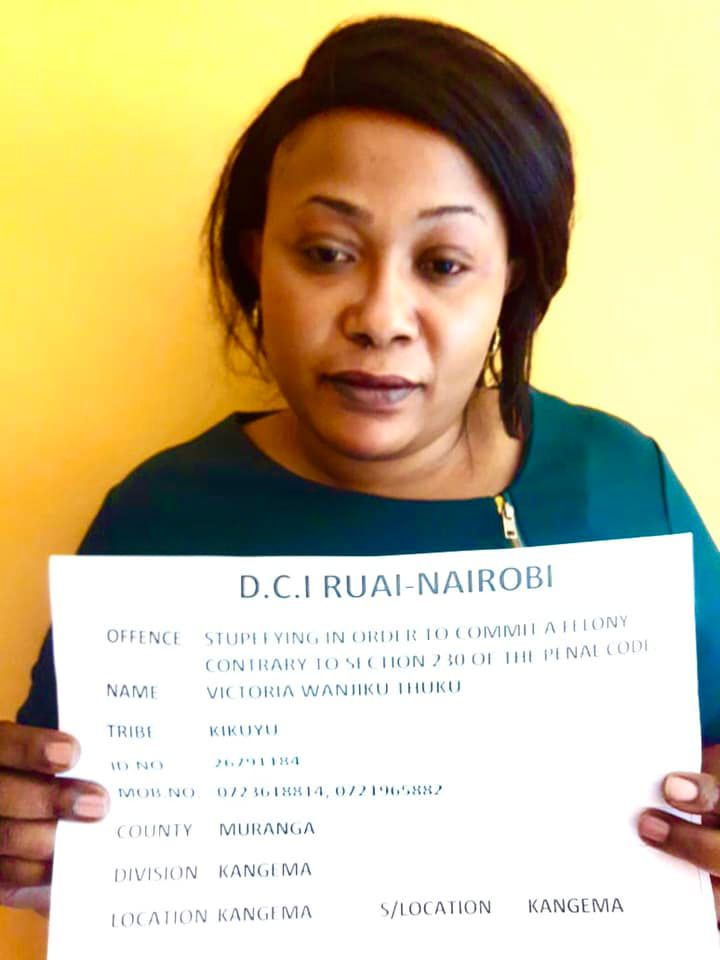 D.C.I RUAI-NAIROBI
OFFENCE STUPEFYING IN ORDER TO COMMIT A FELONY
CONTRARY TO SECTION 230 OF THE PENAL CODE.
NAME VICTORIA WANJIKU THUKU
TRIBE KIKUYU
ID NO 26791184
MOB.NO. 0723618814, 0721965882
COUNTY MURANGA
DIVISION KANGEMA
LOCATION KANGEMA S/LOCATION KANGEMA